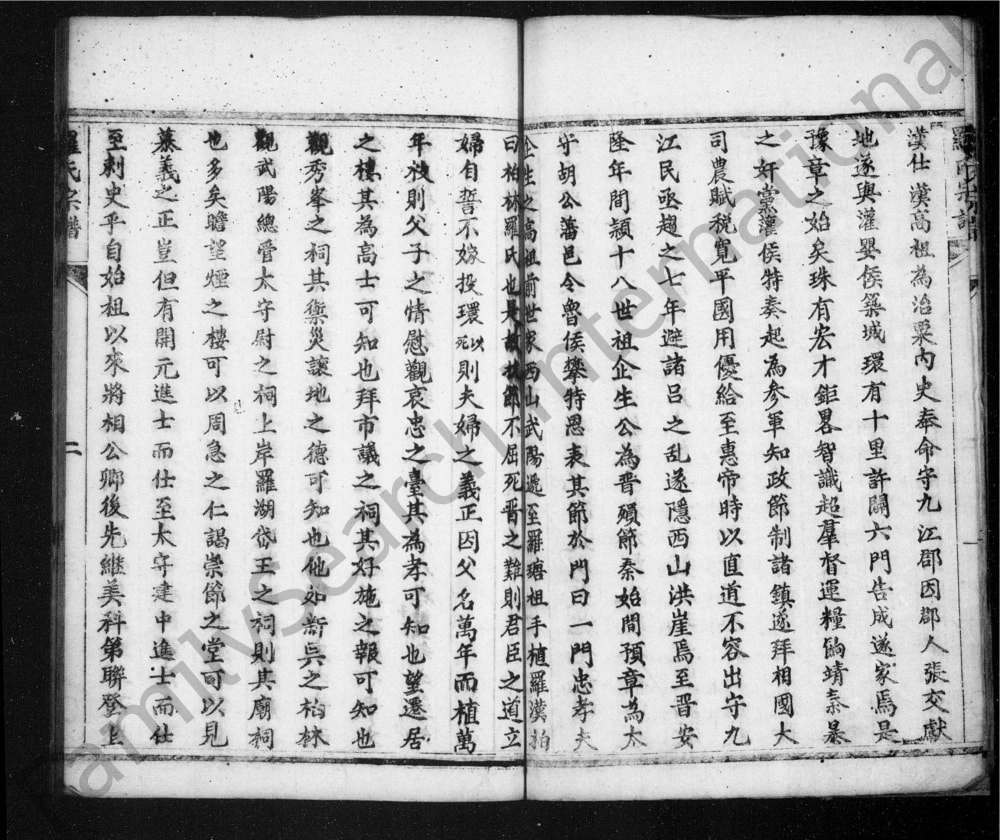 羅氏宗譜
漢仕漢高祖為治粟內史奉命守九江郡因郡人張交獻
地遂與灌嬰侯築城環有十里許開六門告成遂家焉是
豫章之始矣珠有宏才鉅畧智識超羣督運糧餉靖秦暴
之奸黨灌侯特奏起為參軍知政節制諸鎮遂拜相國大
司農賦稅寬平國用優給至惠帝時以直道不容出守九
江民亟趨之七年避諸呂之乱遂隱西山洪崖焉至晉安
隆年間頴十八世祖企生公為晋殞節秦始間預章為太
守胡公藩邑令魯侯擧特恩表其節於門曰一門忠孝夫
企生之高祖前世家西山武陽遞至羅瑭祖手植羅漢柏
曰柏林羅氏也是故抗節不屈死晋之難則君臣之道立
婦自誓不嫁投環以死則夫婦之義正因父名萬年而植萬
年枝則父子之情慰觀哀忠之臺其為孝可知也望還居
之樓其為高士可知也拜市議之祠其好施之報可知也
觀秀峯之祠其禦災讓地之德可知也他如新吳之柏林
觀武陽總管太守尉之祠上岸羅湖岱王之祠則其廟祠
也多矣瞻望煙之樓可以周急之仁謁崇節之堂可以見
慕義之正豈但有開元進士而仕至太守建中進士而仕
至刺史乎自始祖以來將相公卿後先繼美科第聯登上
羅氏宗譜
一
二
FamilySearch International